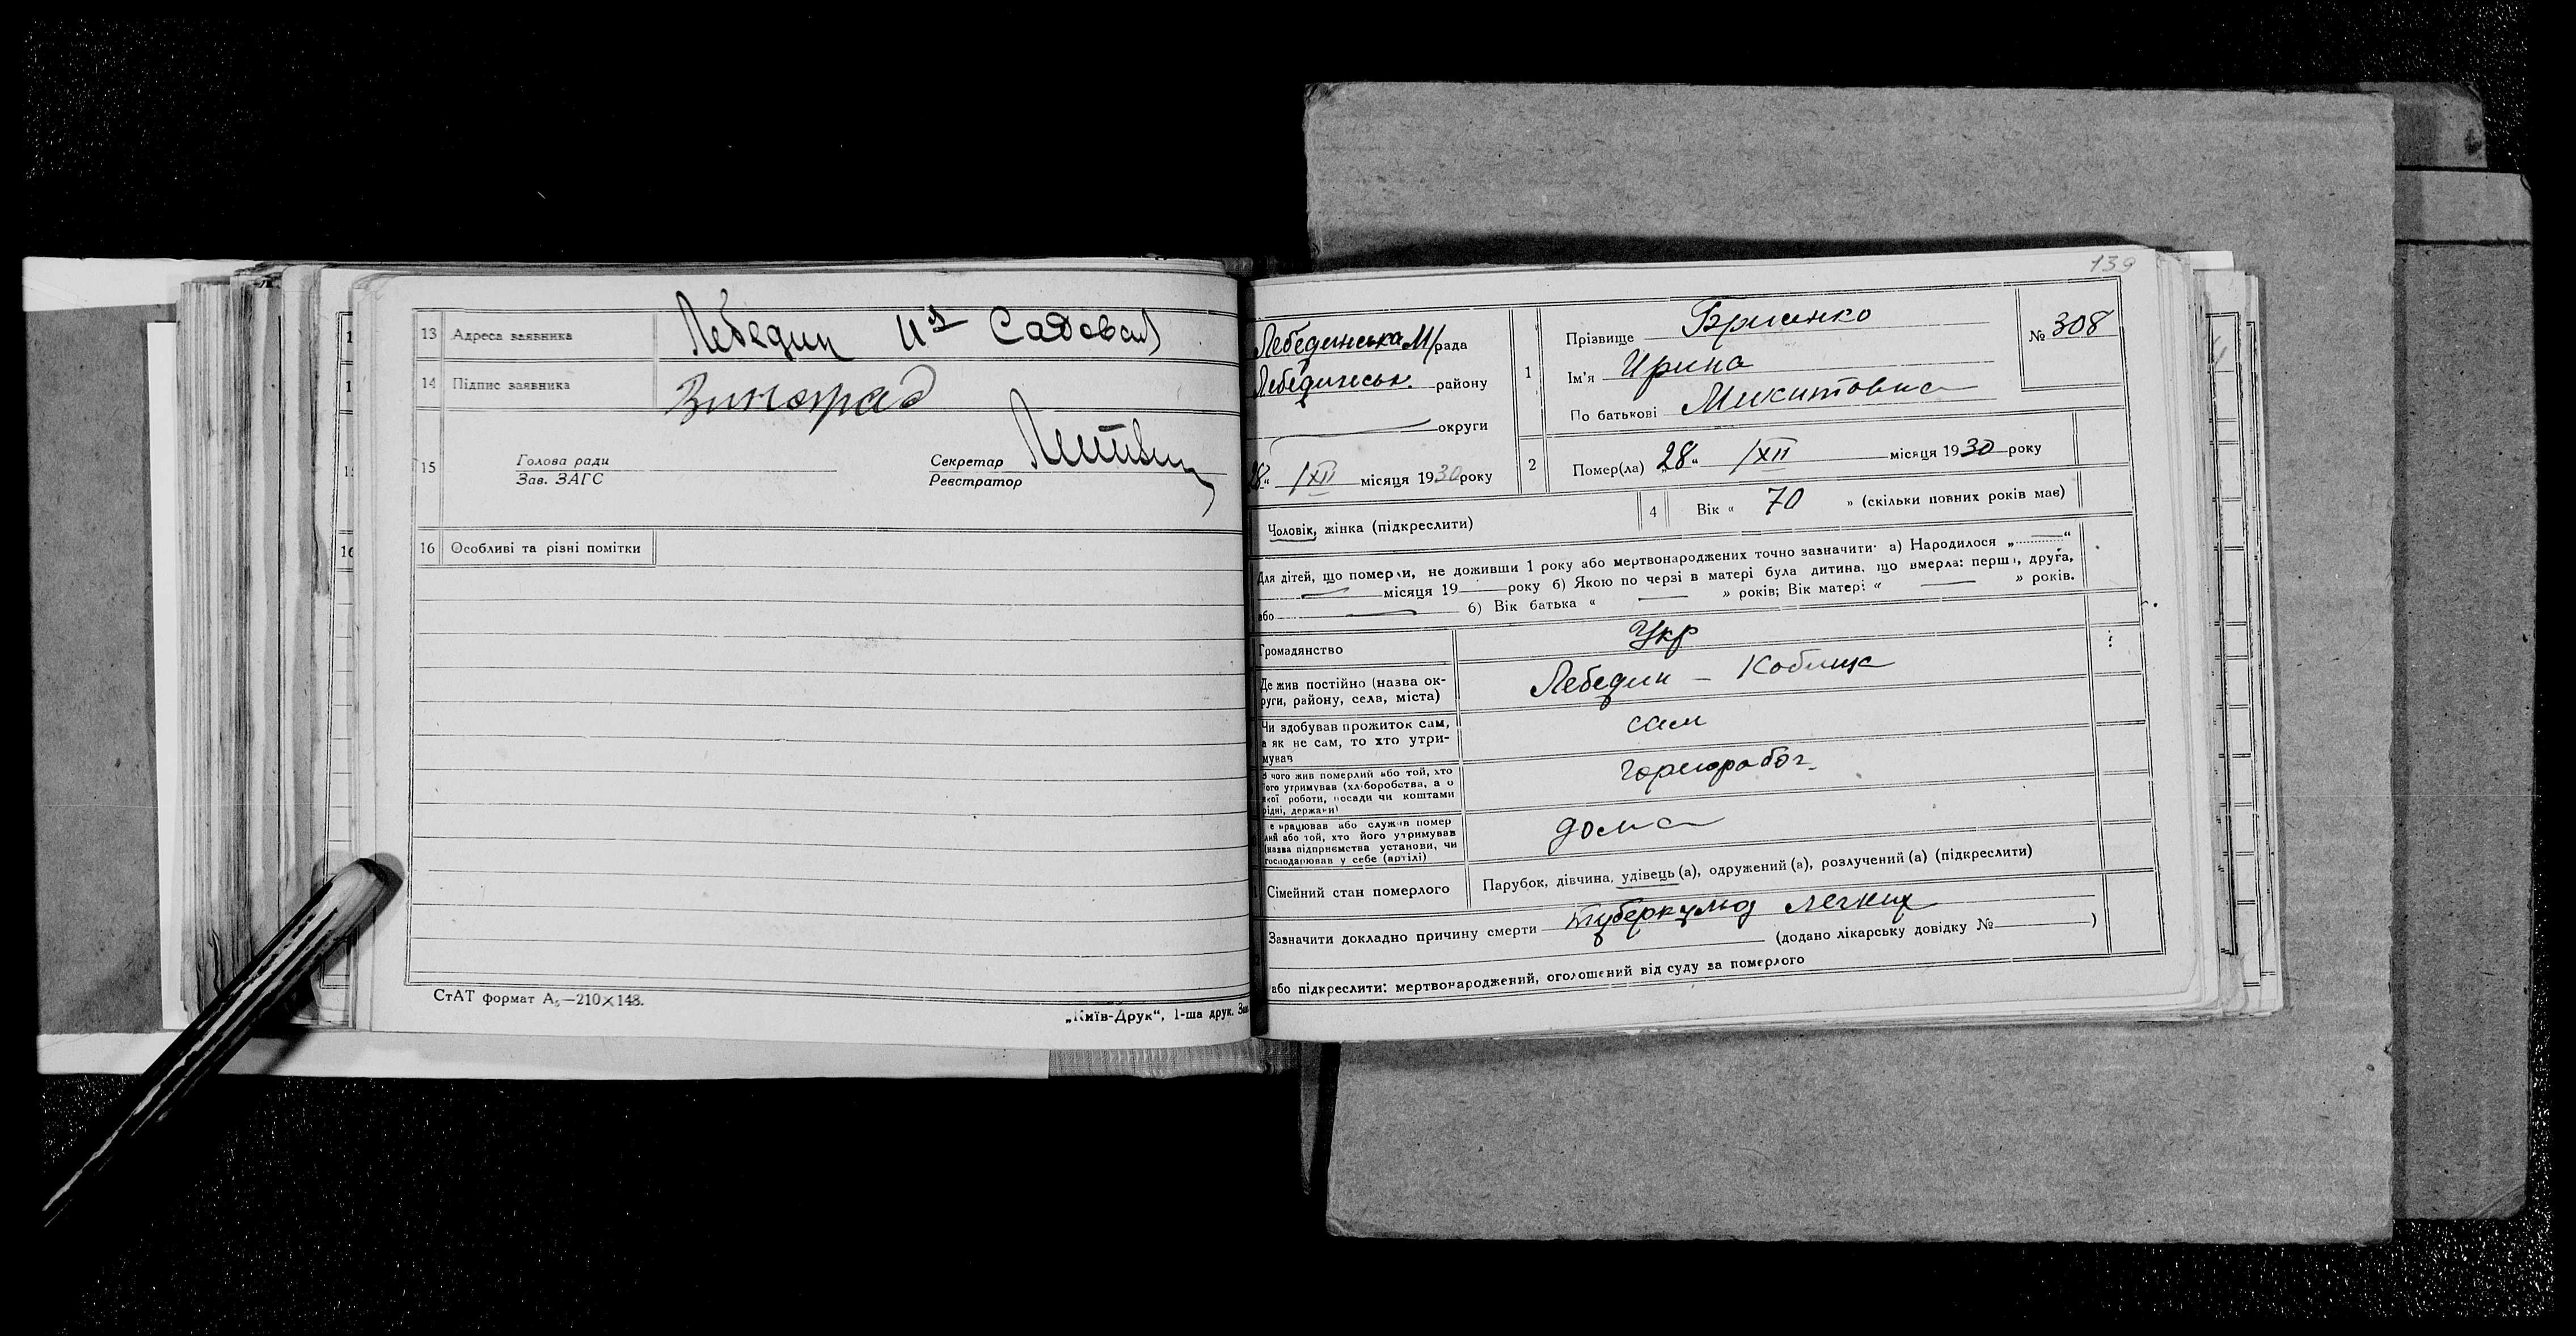 13 Адреса заявника Лебедин Садовая
14 Підпис заявника Виноград
15 Голова ради Секретар
Зав. ЗАГС Реєстратор
16 Особливі та різні помітки
СтАТ формат А₅—210×148.
„Київ-Друк“, 1-ша друк. Зав.
139
Лебединська М/рада
Лебединськ. району
округи
28 „ /XII місяця 1930 року
1 Прізвище
Ім'я Ирина
По батькові Микитовна
№ 308
2 Помер(ла) „28 “ /XII місяця 1930 року
Чоловік, жінка (підкреслити) 4 Вік « 70 » (скільки повних років має)
Для дітей, що померли, не доживши 1 року або мертвонароджених точно зазначити· а) Народилося „ “
місяця 19 року б) Якою по черзі в матері була дитина, що вмерла: перша, друга,
або б) Вік батька « » років; Вік матері « » років.
Громадянство Укр
Де жив постійно (назва ок-
руги, району, села, міста) Лебедин –
Чи здобував прожиток сам,
а як не сам, то хто утри-
мував сам
З чого жив померлий або той, хто
його утримував (хліборобства, а о
якої роботи, посади чи коштами
рідні, держави)
е працював або служив помер
лий або той, хто його утримував
(назва підприємства установи, чи
господарював у себе (артілі) дома
Сімейний стан померлого Парубок, дівчина, удівець (а), одружений (а), розлучений (а) (підкреслити)
Зазначити докладно причину смерти туберкульоз легких
(додано лікарську довідку № )
або підкреслити: мертвонароджений, оголошений від суду за померлого